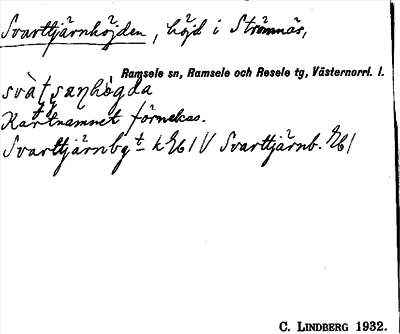 Svarttjärnhöjden, höjd i Strömnäs,
Ramsele sn, Ramsele och Resele tg, Västernorrl. l.
Kartnamnet förnekas.
Svarttjärnbg V Svarttjärnb.
C. LINDBERG 1932.